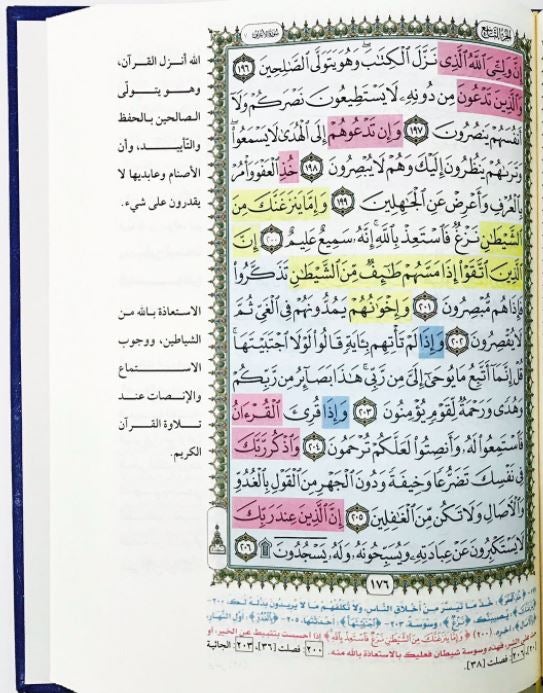 سورة الأعراف ٧
الجزء التاسع
إِنَّ وَلِـِّۧيَ ٱللَّهُ ٱلَّذِى نَزَّلَ ٱلْكِتَٰبَ ۖ وَهُوَ يَتَوَلَّى ٱلصَّٰلِحِينَ ١٩٦
وَٱلَّذِينَ تَدْعُونَ مِن دُونِهِۦ لَا يَسْتَطِيعُونَ نَصْرَكُمْ وَلَآ
أَنفُسَهُمْ يَنصُرُونَ ١٩٧ وَإِن تَدْعُوهُمْ إِلَى ٱلْهُدَىٰ لَا يَسْمَعُوا۟ ۖ
وَتَرَىٰهُمْ يَنظُرُونَ إِلَيْكَ وَهُمْ لَا يُبْصِرُونَ ١٩٨ خُذِ ٱلْعَفْوَ وَأْمُرْ
بِٱلْعُرْفِ وَأَعْرِضْ عَنِ ٱلْجَٰهِلِينَ ١٩٩ وَإِمَّا يَنزَغَنَّكَ مِنَ
ٱلشَّيْطَٰنِ نَزْغٌ فَٱسْتَعِذْ بِٱللَّهِ ۚ إِنَّهُۥ سَمِيعٌ عَلِيمٌ ٢٠٠ إِنَّ
ٱلَّذِينَ ٱتَّقَوْا۟ إِذَا مَسَّهُمْ طَٰٓئِفٌ مِّنَ ٱلشَّيْطَٰنِ تَذَكَّرُوا۟
فَإِذَا هُم مُّبْصِرُونَ ٢٠١ وَإِخْوَٰنُهُمْ يَمُدُّونَهُمْ فِى ٱلْغَىِّ ثُمَّ
لَا يُقْصِرُونَ ٢٠٢ وَإِذَا لَمْ تَأْتِهِم بِـَٔايَةٍ قَالُوا۟ لَوْلَا ٱجْتَبَيْتَهَا ۚ
قُلْ إِنَّمَآ أَتَّبِعُ مَا يُوحَىٰٓ إِلَىَّ مِن رَّبِّى ۚ هَٰذَا بَصَآئِرُ مِن رَّبِّكُمْ
وَهُدًى وَرَحْمَةٌ لِّقَوْمٍ يُؤْمِنُونَ ٢٠٣ وَإِذَا قُرِئَ ٱلْقُرْءَانُ
فَٱسْتَمِعُوا۟ لَهُۥ وَأَنصِتُوا۟ لَعَلَّكُمْ تُرْحَمُونَ ٢٠٤ وَٱذْكُر رَّبَّكَ
فِى نَفْسِكَ تَضَرُّعًا وَخِيفَةً وَدُونَ ٱلْجَهْرِ مِنَ ٱلْقَوْلِ بِٱلْغُدُوِّ
وَٱلْءَاصَالِ وَلَا تَكُن مِّنَ ٱلْغَٰفِلِينَ ٢٠٥ إِنَّ ٱلَّذِينَ عِندَ رَبِّكَ
لَا يَسْتَكْبِرُونَ عَنْ عِبَادَتِهِۦ وَيُسَبِّحُونَهُۥ وَلَهُۥ يَسْجُدُونَ ۩ ٢٠٦
١٧٦
الله أنزل القرآن،
وهو يتولّى
الصالحين بالحفظ
والتأييد، وأن
الأصنام وعابديها لا
يقدرون على شيء.
الاستعاذة بالله من
الشياطين، ووجوب
الاستماع
والإنصات عند
تلاوة القرآن
الكريم.
خذ ما تيسر من أخلاق الناس، ولا تكلفهم ما لا يريدون بذله لك، ٢٠٠-
﴿نَزْغٌ﴾: وسوسة، ٢٠٣- ﴿اجْتَبَيْتَهَا﴾:
(٢٠٠) ﴿وَإِمَّا يَنزَغَنَّكَ مِنَ الشَّيْطَانِ نَزْغٌ فَاسْتَعِذْ بِاللَّهِ﴾ إذا أحسست بتثبيط عن الخير، أو
وسوسة شيطان فعليك بالاستعاذة بالله منه. ٢٠٠: فصلت [٣٦]، ٢٠٣: الجاثية
[٢٠]، ٢٠٦: فصلت [٣٨].